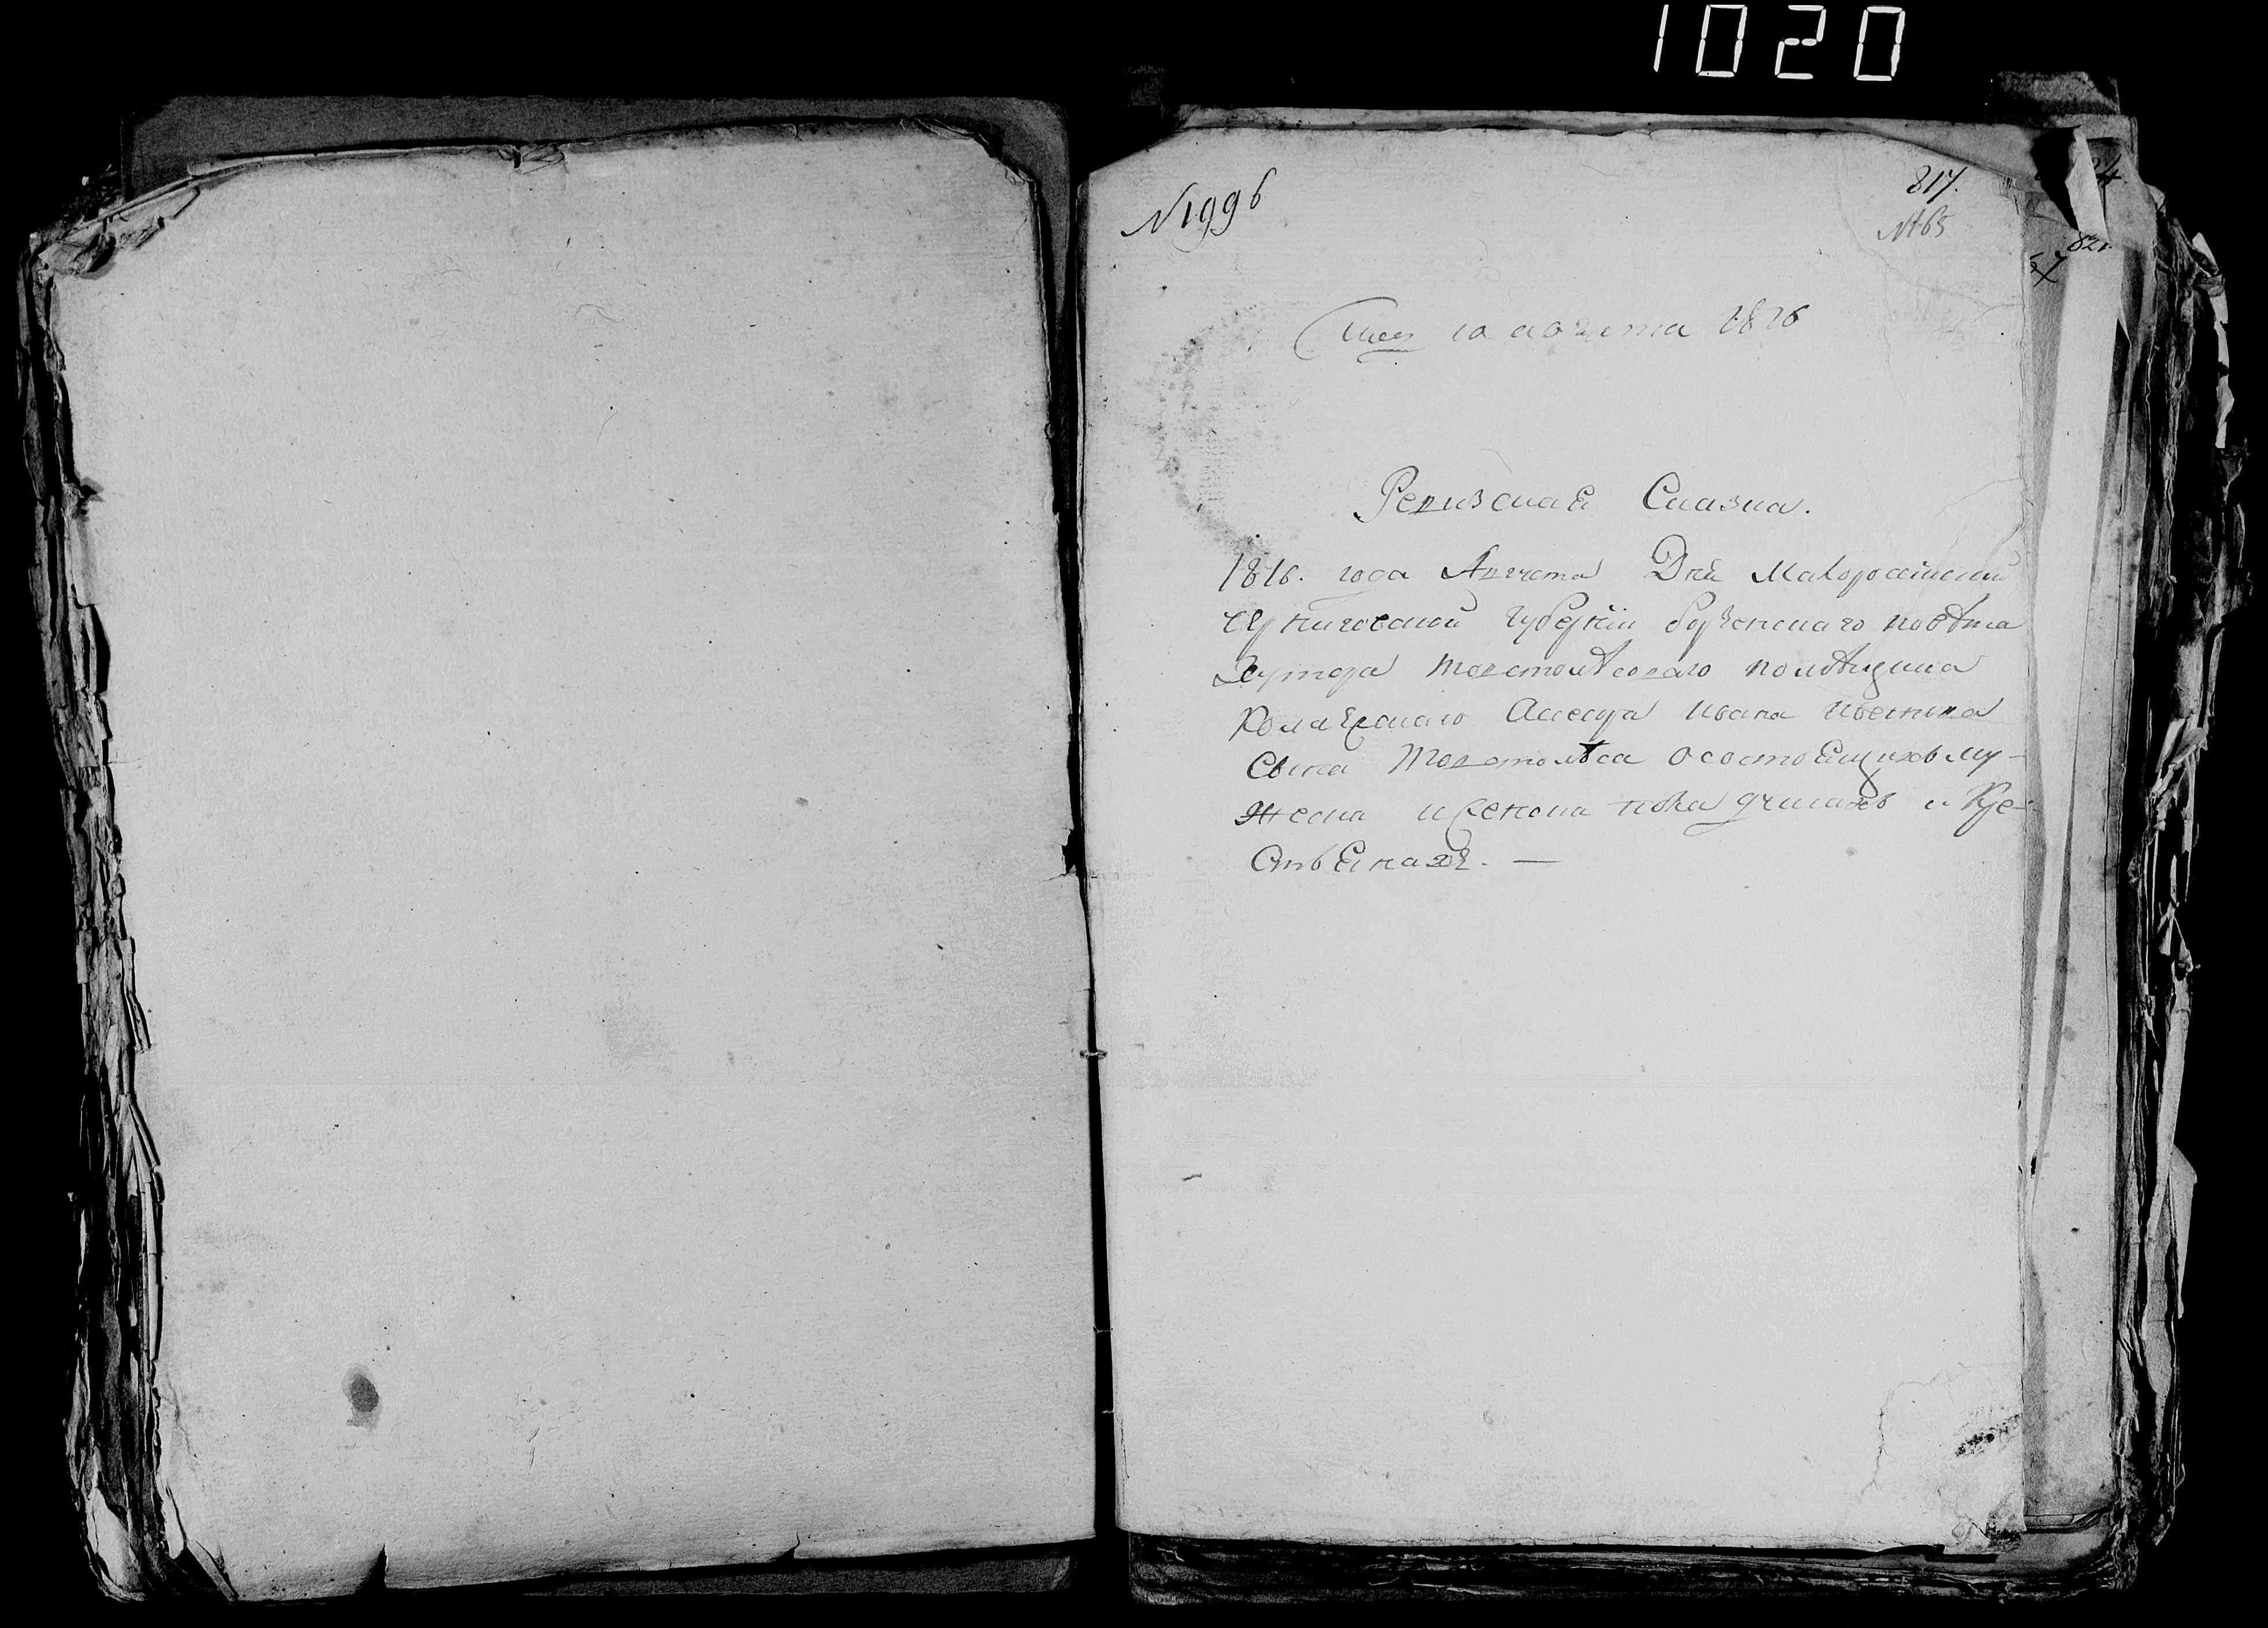 1020
N 996
817.
№ 65
821
10 августа 1816
Ревизская Сказка.
1816. года Августа Дня Малоросійской
Черниговской губерніи борзенского повѣта
Хутора Товстолѣсоваго помѣщика
Колежского Асесора Ивана
Сына Товстолѣса о состоящихъ му-
жеска и женска пола душахъ и кре-
стьянахъ. —